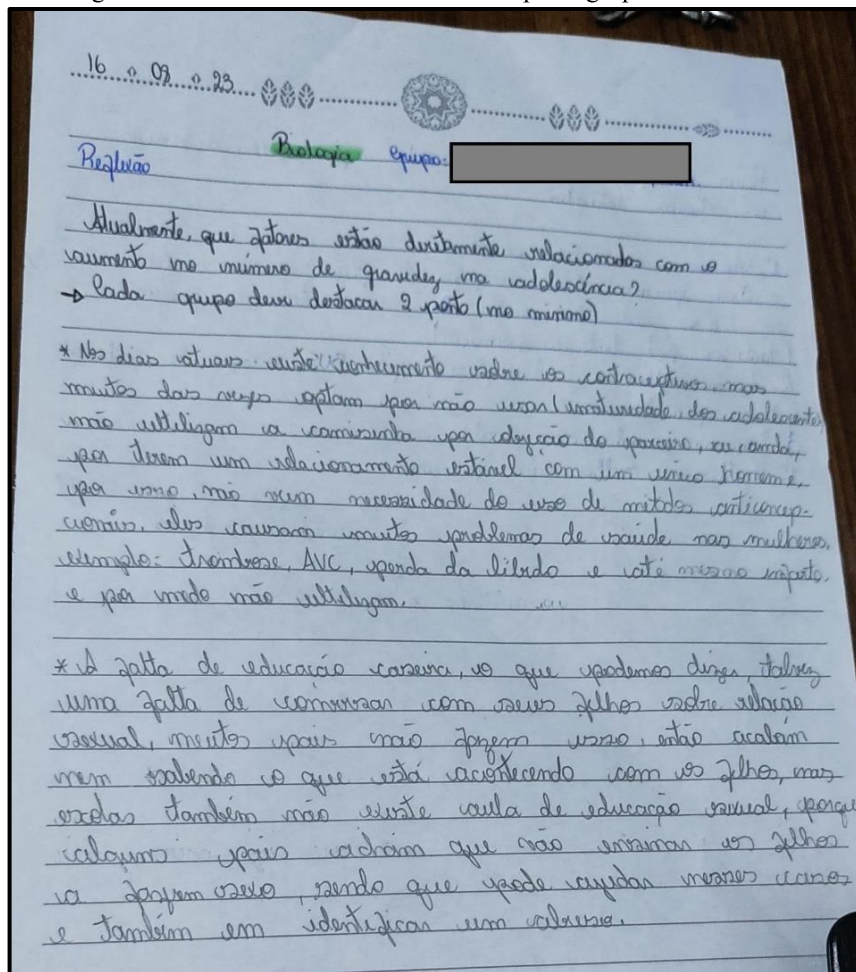 16 08 23
Biologia grupo:
Reflexão
Atualmente, que fatores estão diretamente relacionados com o
aumento no número de gravidez na adolescência?
→ Cada grupo deve destacar 2 ponto (no minimo)
* Nos dias atuais existe conhecimento sobre os contraceptivos, mas
muitas das vezes optam por não usar (imaturidade dos adolescentes)
não ultilizam a camisinha por objeção do parceiro, ou ainda,
por terem um relacionamento estável com um único homem e,
por isso, não veem necessidade do uso de métodos anticoncep-
cionais, eles causam muitos problemas de saúde nas mulheres,
exemplo: trombose, AVC, perda da libido e até mesmo infarto,
e por medo não ultilizam.
* A falta de educação caseira, o que podemos dizer, talvez
uma falta de conversar com seus filhos sobre relação
sexual, muitos pais não fazem isso, então acabam
nem sabendo o que está acontecendo com os filhos, nas
escolas também não existe aula de educação sexual, porque
alguns pais acham que vão ensinar os filhos
a fazerem sexo, sendo que pode ajudar nesses casos
e também em identificar um abuso.